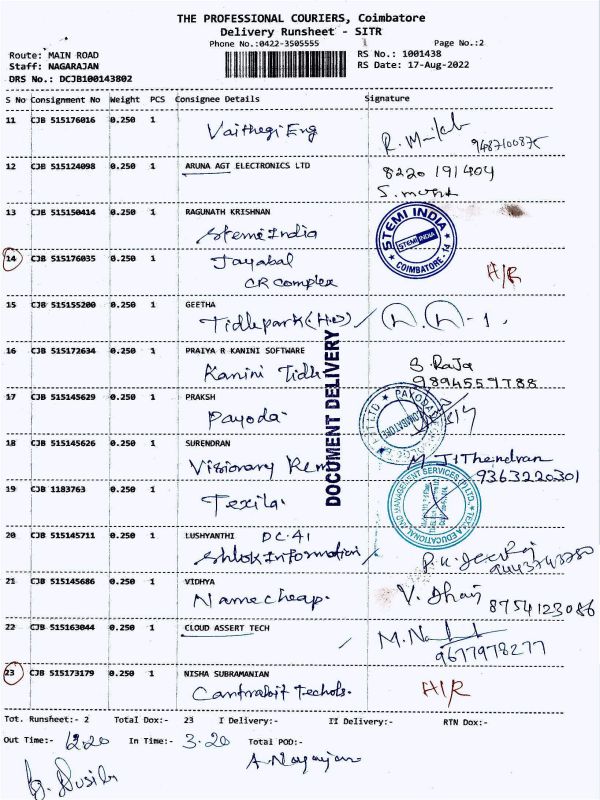 THE PROFESSIONAL COURIERS, Coimbatore
Delivery Runsheet - SITR
Phone No.:0422-3505555 Page No.:2
Route: MAIN ROAD RS No.: 1001438
Staff: NAGARAJAN RS Date: 17-Aug-2022
DRS No.: DCJB100143802
S No Consignment No Weight PCS Consignee Details Signature
11 CJB 515176016 0.250 1
Vaithegi Eng
9487100875
12 CJB 515124098 0.250 1 ARUNA AGT ELECTRONICS LTD 8220 191404
13 CJB 515150414 0.250 1 RAGUNATH KRISHNAN
Stemi India
STEMI INDIA
STEMI INDIA
COIMBATORE - 14
14 CJB 515176035 0.250 1 Jayabal
CR Complex H/R
15 CJB 515155200 0.250 1 GEETHA
16 CJB 515172634 0.250 1 PRAIYA R KANINI SOFTWARE S. Raja
Kanini 9894559788
DOCUMENT DELIVERY
17 CJB 515145629 0.250 1 PRAKSH
Payoda
COIMBATORE
18 CJB 515145626 0.250 1 SURENDRAN
Visionary M. JIThendran
9363220301
19 CJB 1183763 0.250 1 Texila
20 CJB 515145711 0.250 1 LUSHYANTHI DC-41
Shlok Information
21 CJB 515145686 0.250 1 VIDHYA
Namecheap. V. 8754123086
22 CJB 515163044 0.250 1 CLOUD ASSERT TECH
9677978277
23 CJB 515173179 0.250 1 NISHA SUBRAMANIAN
H/R
Tot. Runsheet:- 2 Total Dox:- 23 I Delivery:- II Delivery:- RTN Dox:-
Out Time:- 12.20 In Time:- 3.20 Total POD:-
A. Nagarajan